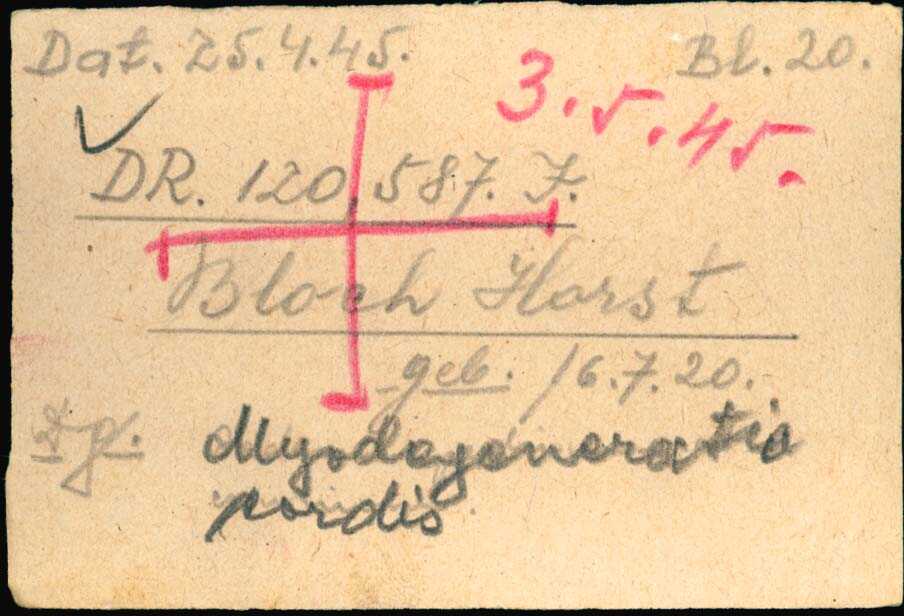 Dat. 25.4.45. Bl. 20.
3.5.45.
DR. 120.587. J.
Bloch Horst
geb. 16.7.20.
Dg. Myodegeneratio
cordis